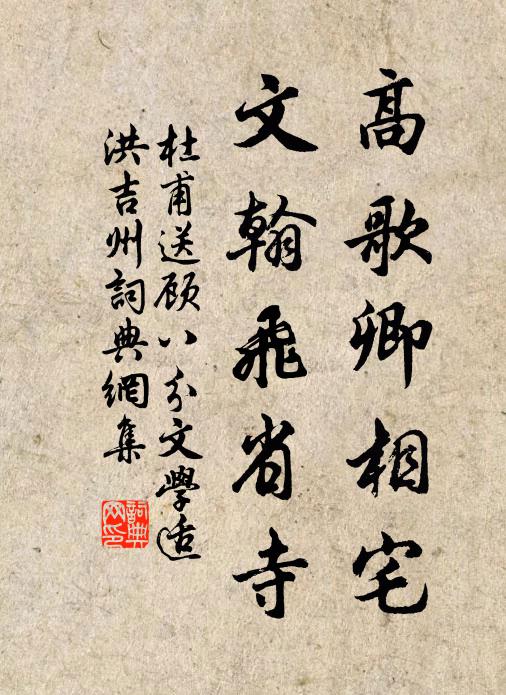 高歌卿相宅
文翰飛省寺
杜甫送顧八分文學適
洪吉州詞典網集
詞典網印